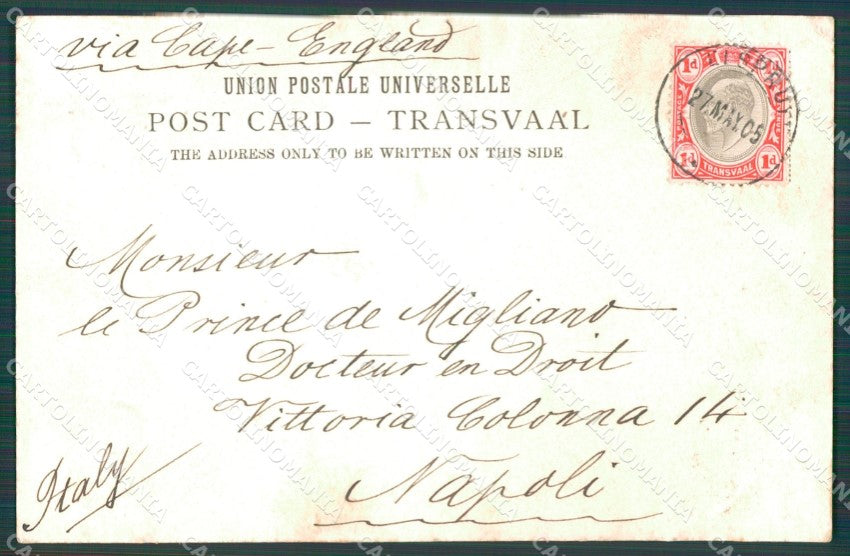 via Cape - England
UNION POSTALE UNIVERSELLE
POST CARD — TRANSVAAL
THE ADDRESS ONLY TO BE WRITTEN ON THIS SIDE
1d 1d
27 MAY 05
POSTAGE
1d TRANSVAAL 1d
Monsieur
le Prince de Migliano
Docteur en Droit
Vittoria Colonna 14
Napoli
Italy
CARTOLINOMANIA